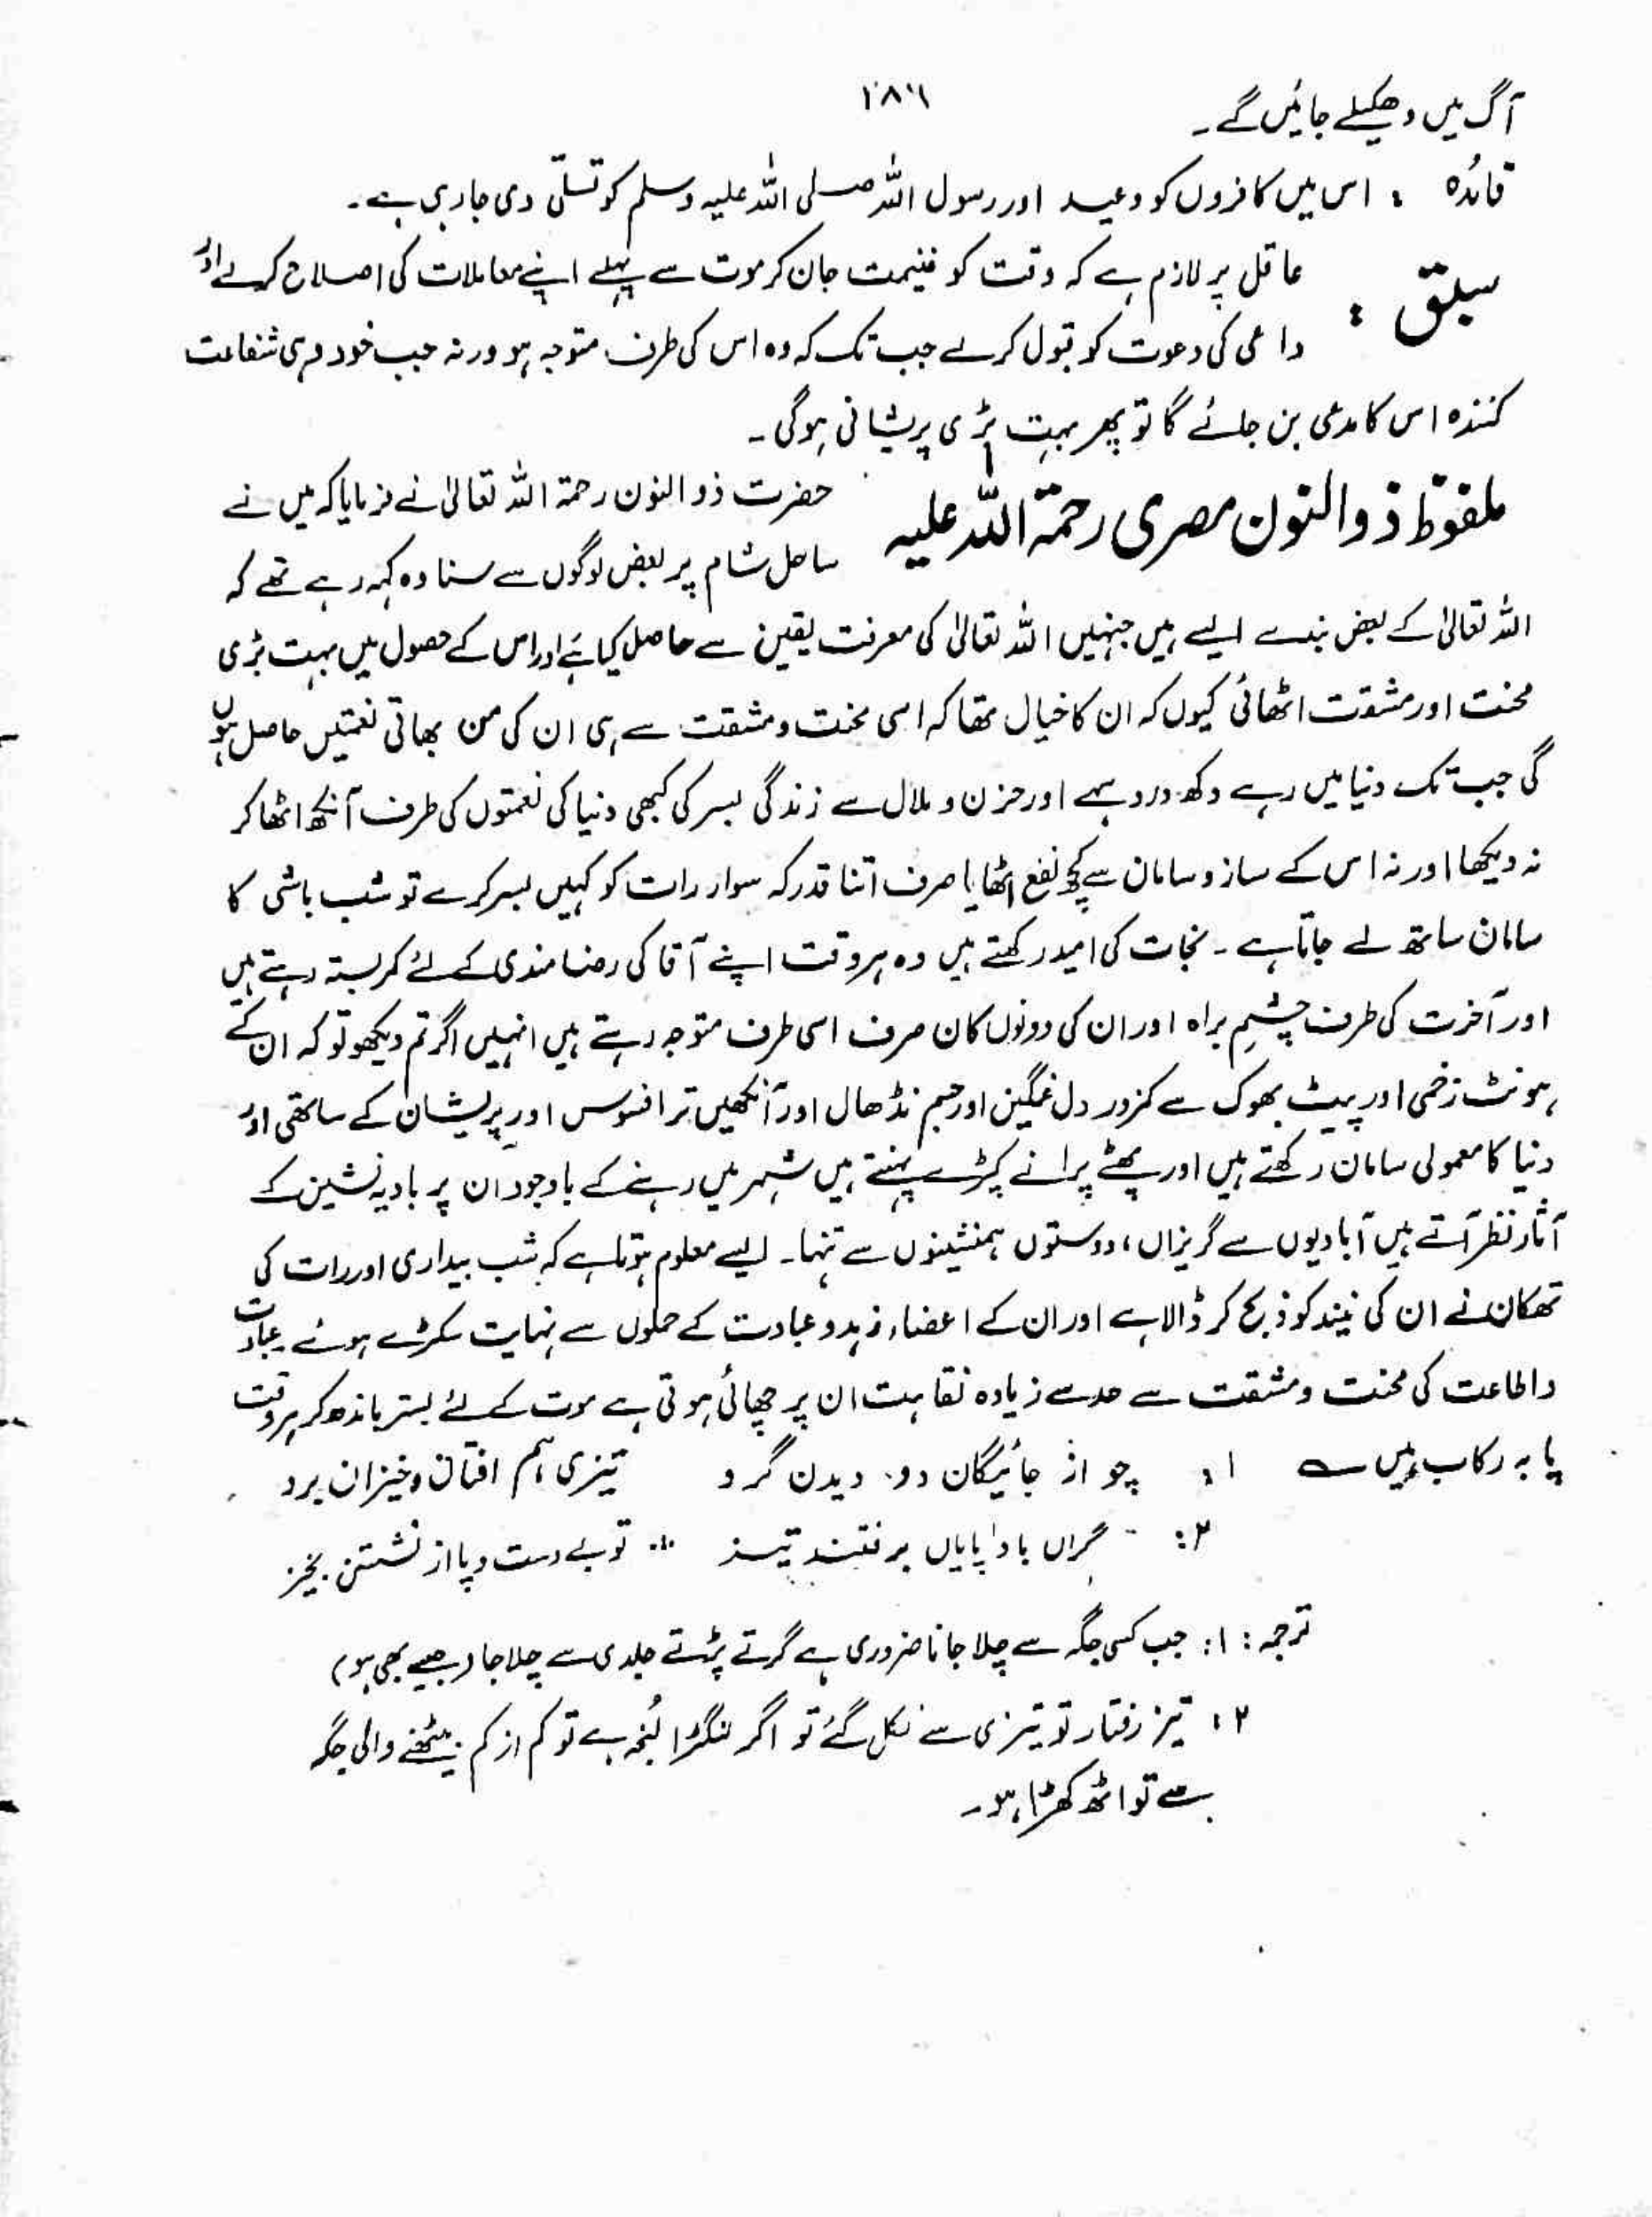 ۲۸۶
آگ میں دھکیلے جائیں گے۔
فائدہ : اس میں کافروں کو وعید اور رسول اللہ صلی اللہ علیہ وسلم کو تسلّی دی جا رہی ہے۔
سبق : عاقل پر لازم ہے کہ وقت کو غنیمت جان کر موت سے پہلے اپنے معاملات کی اصلاح کرلے اور
داعی کی دعوت کو قبول کرلے جب تک کہ وہ اس کی طرف متوجہ ہو ورنہ جب خود وہی شفاعت
کنندہ اس کا مدعی بن جائے گا تو پھر بہت بڑی پریشانی ہوگی۔
ملفوظ ذوالنون مصری رحمۃ اللہ علیہ حضرت ذوالنون رحمۃ اللہ تعالیٰ نے فرمایا کہ میں نے
ساحل شام پر بعض لوگوں سے سنا وہ کہہ رہے تھے کہ
اللہ تعالیٰ کے بعض بندے ایسے ہیں جنہیں اللہ تعالیٰ کی معرفت یقین سے حاصل کیا ہے اور اس کے حصول میں بہت بڑی
محنت اور مشقت اٹھائی کیوں کہ ان کا خیال تھا کہ اسی محنت و مشقت سے ہی ان کی من بھاتی نعمتیں حاصل ہوں
گی جب تک دنیا میں رہے دکھ درد سہے اور حزن و ملال سے زندگی بسر کی کبھی دنیا کی نعمتوں کی طرف آنکھ اٹھا کر
نہ دیکھا اور نہ اس کے ساز و سامان سے کچھ نفع اٹھایا صرف اتنا قدر کہ سوار رات کو کہیں بسر کرے تو شب باشی کا
سامان ساتھ لے جاتا ہے۔ نجات کی امید رکھتے ہیں وہ ہر وقت اپنے آقا کی رضامندی کے لئے کمربستہ رہتے ہیں
اور آخرت کی طرف چشمِ براہ اور ان کی دونوں کان صرف اسی طرف متوجہ رہتے ہیں انہیں اگر تم دیکھو تو کہ ان کے
ہونٹ زخمی اور پیٹ بھوک سے کمزور دل غمگین اور جسم نڈھال اور آنکھیں تر افسوس اور پریشان کے ساتھی اور
دنیا کا معمولی سامان رکھتے ہیں اور پھٹے پرانے کپڑے پہنتے ہیں شہر میں رہنے کے باوجود ان پر بادیہ نشین کے
آثار نظر آتے ہیں آبادیوں سے گریزاں، دوستوں ہمنشینوں سے تنہا۔ ایسے معلوم ہوتا ہے کہ شب بیداری اور رات کی
تھکان نے ان کی نیند کو ذبح کر ڈالا ہے اور ان کے اعضاء زہد و عبادت کے حملوں سے نہایت سکڑے ہوئے عبادت
واطاعت کی محنت و مشقت سے حد سے زیادہ نقاہت ان پر چھائی ہوتی ہے موت کے لئے بستر باندھ کر ہر وقت
پا بہ رکاب ہیں ؎ ۱: چو از جائیگان دو. دیدن گرو تیزی ہم افتان وخیزان برو
۲: گراں باد پایاں برفتند تیز ∴ تو بے دست و پا از نشستن بخیز
ترجمہ : ۱: جب کسی جگہ سے چلا جانا ضروری ہے گرتے پڑتے جلدی سے چلا جا (جیسے بھی ہو)
۲: تیز رفتار تو تیزی سے نکل گئے تو اگر لنگڑا لُنجہ ہے تو کم از کم بیٹھنے والی جگہ
سے تو اٹھ کھڑا ہو۔